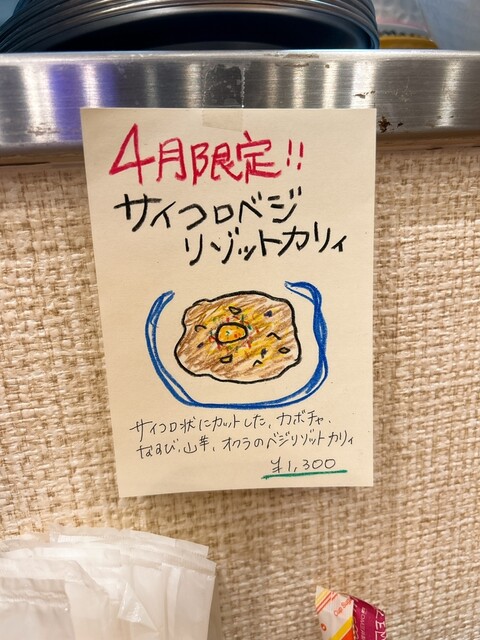 4月限定!!
サイコロベジ
リゾットカリィ
サイコロ状にカットした、カボチャ、
なすび、山芋、オクラのベジリゾットカリィ
¥1,300